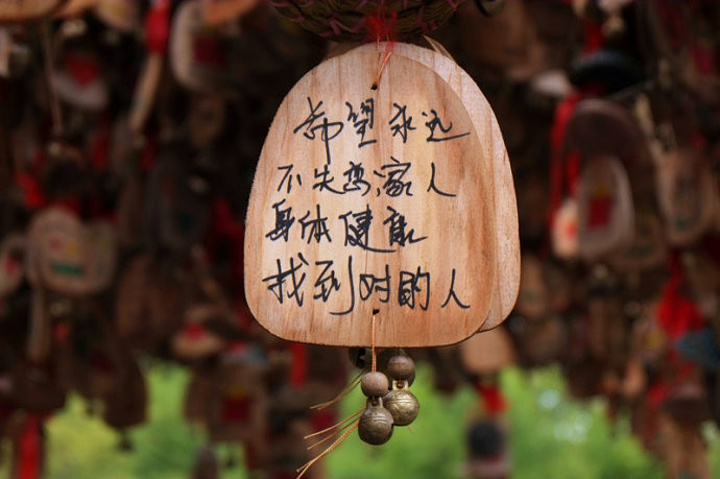 希望永远
不失恋，家人
身体健康
找到对的人